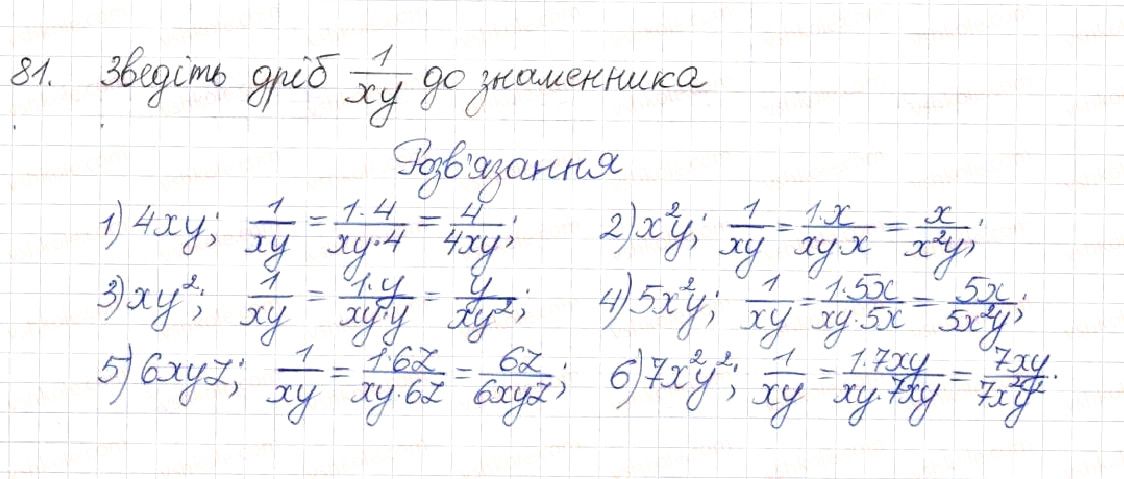 81. Зведіть дріб 1/xy до знаменника
Розв'язання
1) 4xy; 1/xy = 1·4/xy·4 = 4/4xy; 2) x²y; 1/xy = 1·x/xy·x = x/x²y;
3) xy²; 1/xy = 1·y/xy·y = y/xy²; 4) 5x²y; 1/xy = 1·5x/xy·5x = 5x/5x²y;
5) 6xyz; 1/xy = 1·6z/xy·6z = 6z/6xyz; 6) 7x²y²; 1/xy = 1·7xy/xy·7xy = 7xy/7x²y².